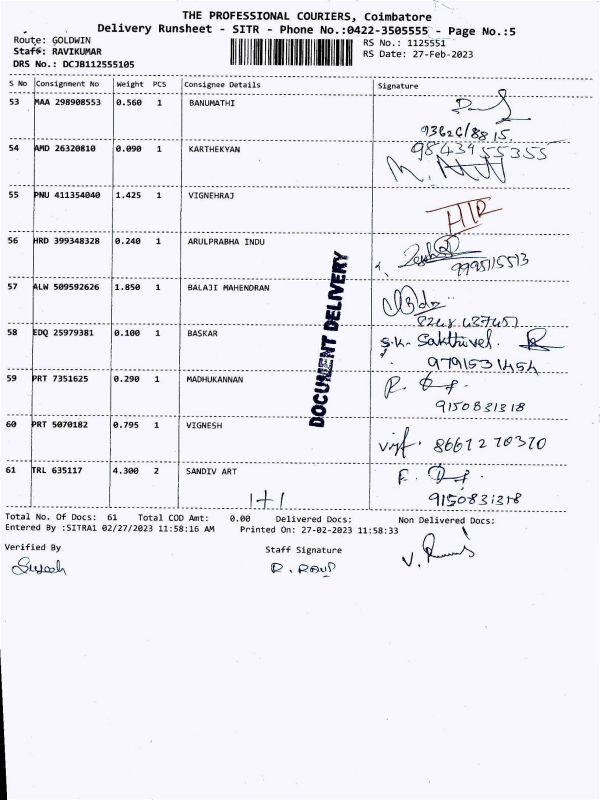 THE PROFESSIONAL COURIERS, Coimbatore
Delivery Runsheet - SITR - Phone No.:0422-3505555 - Page No.:5
Route: GOLDWIN
RS No.: 1125551
Staff: RAVIKUMAR
RS Date: 27-Feb-2023
DRS No.: DCJB112555105
S No Consignment No Weight PCS Consignee Details Signature
53 MAA 298908553 0.560 1 BANUMATHI
93626/8815.
54 AMD 26320810 0.090 1 KARTHEKYAN 9843455355
55 PNU 411354040 1.425 1 VIGNEHRAJ
56 HRD 399348328 0.240 1 ARULPRABHA INDU
9995115513
57 ALW 509592626 1.850 1 BALAJI MAHENDRAN
58 EDQ 25979381 0.100 1 BASKAR S.K. Sakthivel.
9791531454
59 PRT 7351625 0.290 1 MADHUKANNAN
9150831318
60 PRT 5070182 0.795 1 VIGNESH 8667270370
61 TRL 635117 4.300 2 SANDIV ART
1+1 9150831318
DOCUMENT DELIVERY
Total No. Of Docs: 61 Total COD Amt: 0.00 Delivered Docs: Non Delivered Docs:
Entered By :SITRA1 02/27/2023 11:58:16 AM Printed On: 27-02-2023 11:58:33
Verified By Staff Signature